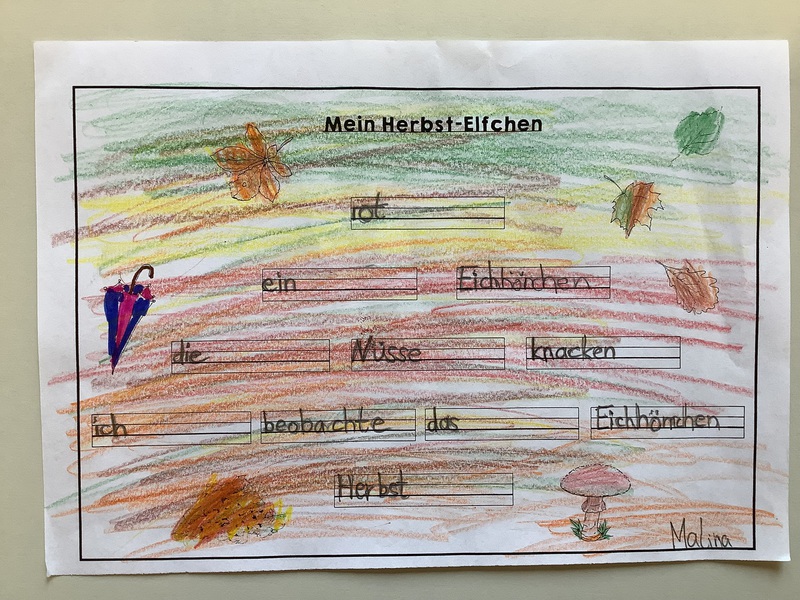 Mein Herbst-Elfchen
rot
ein Eichhörnchen
die Nüsse knacken
ich beobachte das Eichhörnchen
Herbst
Malina